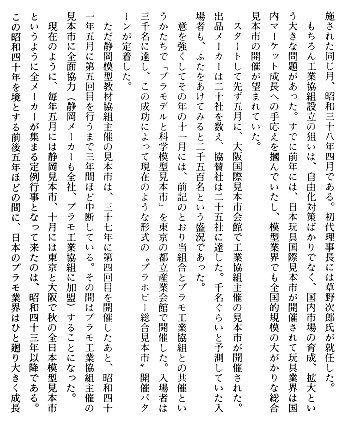 施された同じ月、昭和三十八年四月である。初代理事長には草野次郎氏が就任した。
もちろん工業協組設立の狙いは、自由化対策ばかりでなく、国内市場の育成、拡大とい
う大きな問題があった。すでに前年には、日本玩具国際見本市が開催されて玩具業界は国
内マーケット成長への手応えを摑んでいたし、模型業界でも全国的規模の大がかりな総合
見本市の開催が望まれていた。
スタートして先ず五月に、大阪国際見本市会館で工業協組主催の見本市が開催された。
出品メーカーは二十社を数え、協賛社は二十五社に達した。千名ぐらいと予測していた入
場者も、ふたをあけてみると二千五百名という盛況であった。
意を強くしてその年の十一月には、前記のとおり当組合とプラモ工業協組との共催とい
うかたちで、〝プラモデルと科学模型見本市〟を東京の都立産業会館で開催した。入場者は
三千名に達し、この成功によって現在のような形式の〝プラホビー総合見本市〟開催パタ
ーンが定着した。
ただ静岡模型教材協組主催の見本市は、三十七年に第四回目を開催したあと、昭和四十
一年五月に第五回目を行うまで三年間ほど中断している。その間はプラモ工業協組主催の
見本市に全面協力（静岡メーカーも全社、プラモ工業協組に加盟）することになった。
現在のように、毎年五月には静岡見本市、十月には東京と大阪で秋の全日本模型見本市
というように全メーカーが集まる定例行事となって来たのは、昭和四十三年以降である。
この昭和四十年を境とする前後五年ほどの間に、日本のプラモ業界はひと廻り大きく成長